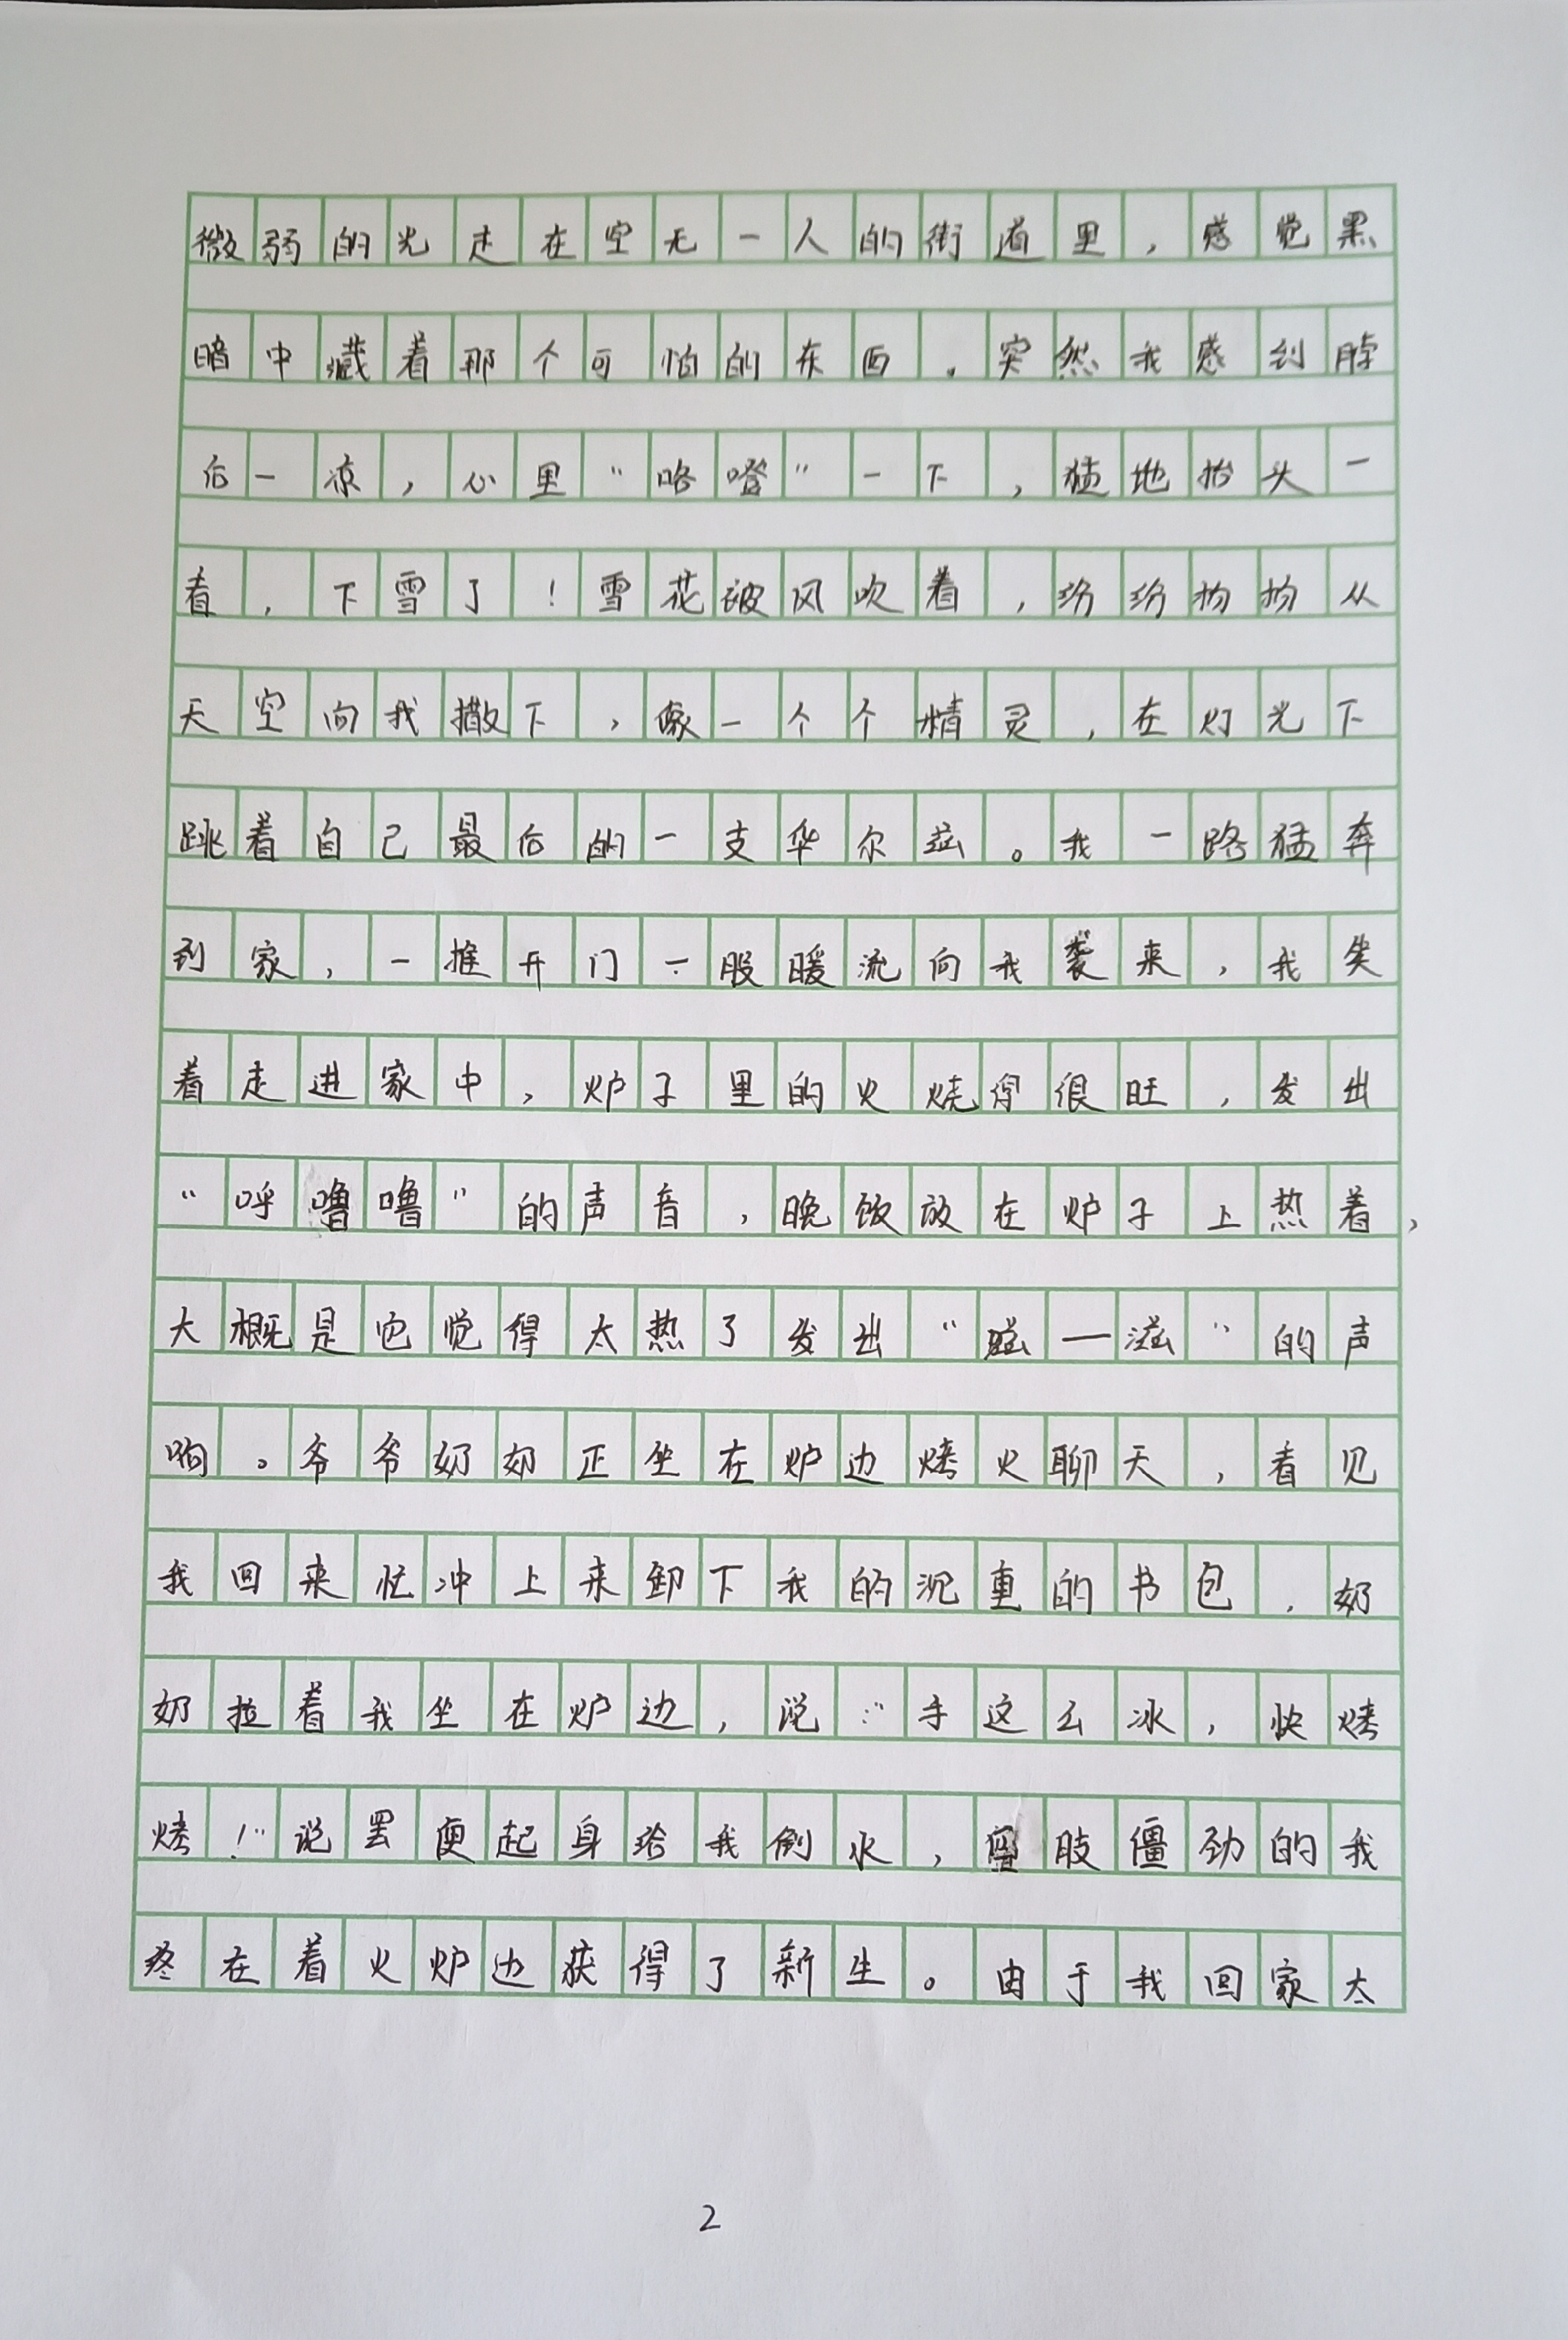 微弱的光走在空无一人的街道里，感觉黑
暗中藏着那个可怕的东西。突然我感到脖
后一凉，心里“咯噔”一下，猛地抬头一
看，下雪了！雪花被风吹着，纷纷扬扬从
天空向我撒下，像一个个精灵，在灯光下
跳着自己最后的一支华尔兹。我一路猛奔
到家，一推开门一股暖流向我袭来，我笑
着走进家中，炉子里的火烧得很旺，发出
“呼噜噜”的声音，晚饭放在炉子上热着，
大概是它觉得太热了发出“滋—滋”的声
响。爷爷奶奶正坐在炉边烤火聊天，看见
我回来忙冲上来卸下我的沉重的书包，奶
奶拉着我坐在炉边，说：“手这么冰，快烤
烤！”说罢便起身给我倒水，肢僵劲的我
在着火炉边获得了新生。由于我回家太
2